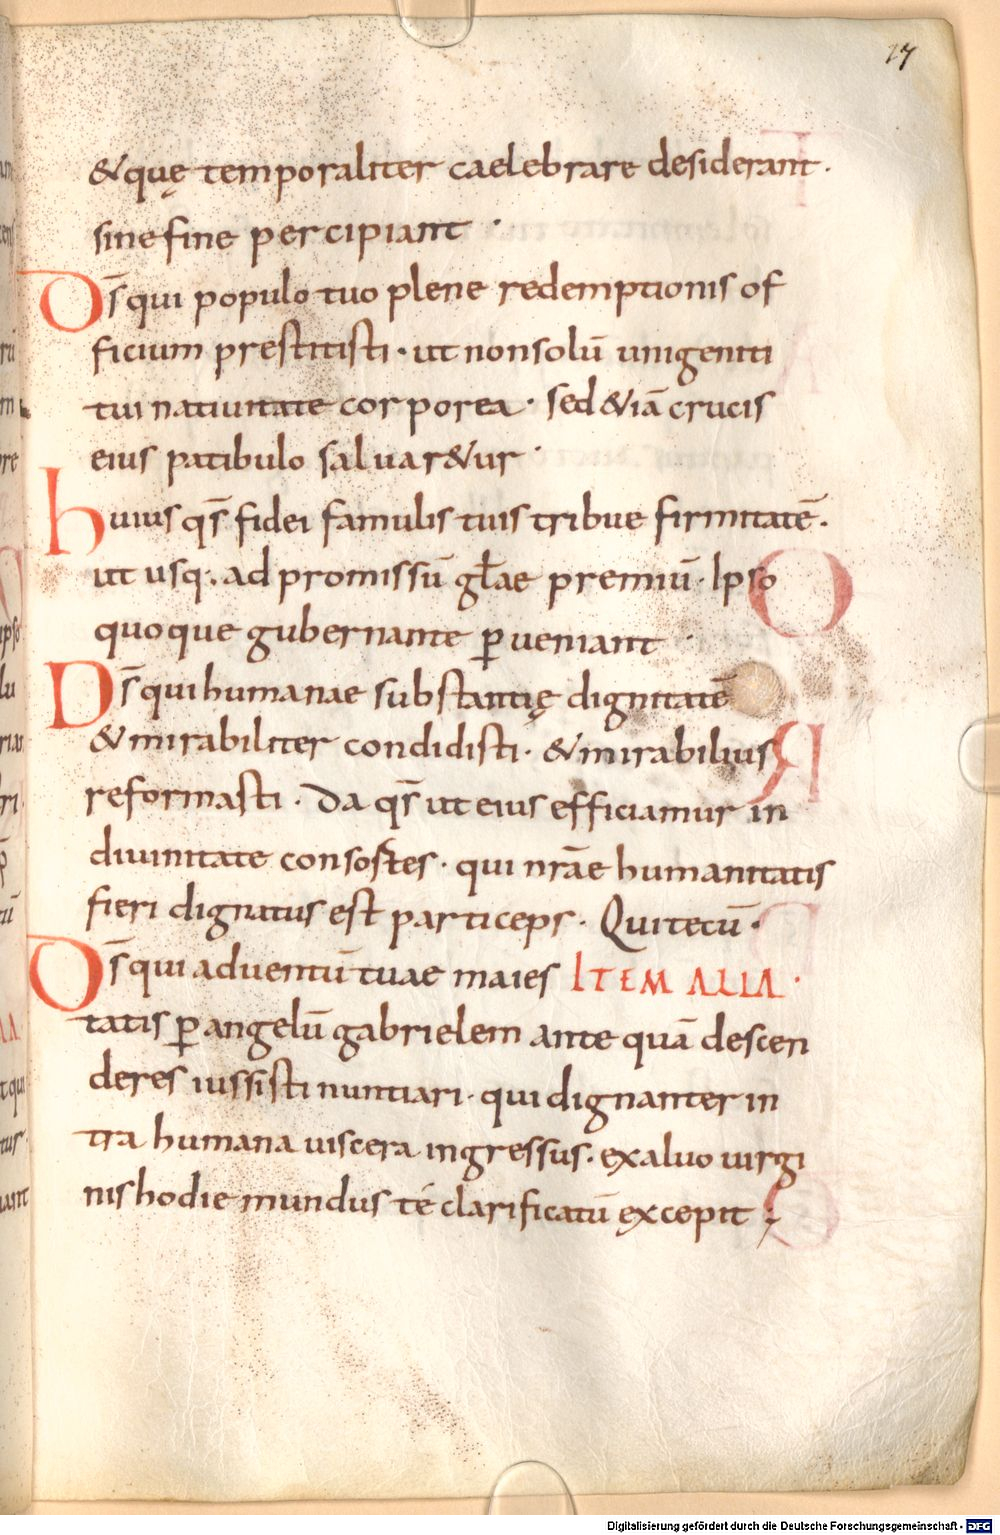 17
&quę temporaliter caelebrare desiderant.
sine fine percipiant ·
Ds̄ qui populo tuo plene redemptionis of
ficium prestitisti · ut non solū unigeniti
tui natiuitate corporea · sed &iā crucis
eius patibulo saluar&ur ·
huius qs̄ fidei famulis tuis tribue firmitatē.
ut usq; ad promissū gl̄ae premiū · Ipso
quoque gubernante ꝑueniant ·
Ds̄ qui humanae substantię dignitatē
& mirabiliter condidisti · & mirabilius
reformasti · Da qs̄ ut eius efficiamur in
diuinitate consostes · qui nrāe humanitatis
fieri dignatus est particeps · Qui tecū ·
Ds̄ qui aduentū tuae maies ITEM ALIA ·
tatis ꝑ angelū gabrielem ante quā descen
deres iussisti nuntiari · qui dignanter in
tra humana uiscera ingressus · ex aluo uirgi
nis hodie mundus té clarificatū excepit ;
Digitalisierung gefördert durch die Deutsche Forschungsgemeinschaft - DFG